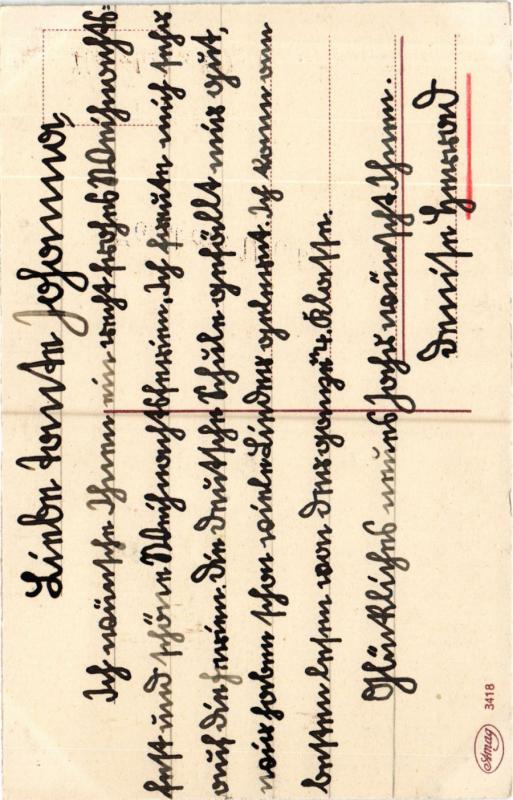 Liebe Tante Johanna,
Ich wünsche Ihnen ein recht frohes Weihnachts=
fest und schöne Weihnachtsferien. Ich freute mich sehr
auf die ferien. Die deutsche Schule gefällt mir gut,
wir haben schon viele Lieder gelernt. Ich kann am
besten lesen von der ganze 4. Klasse.
Glückliches neues Jahr wünscht Ihnen.
Denise
Amag 3418